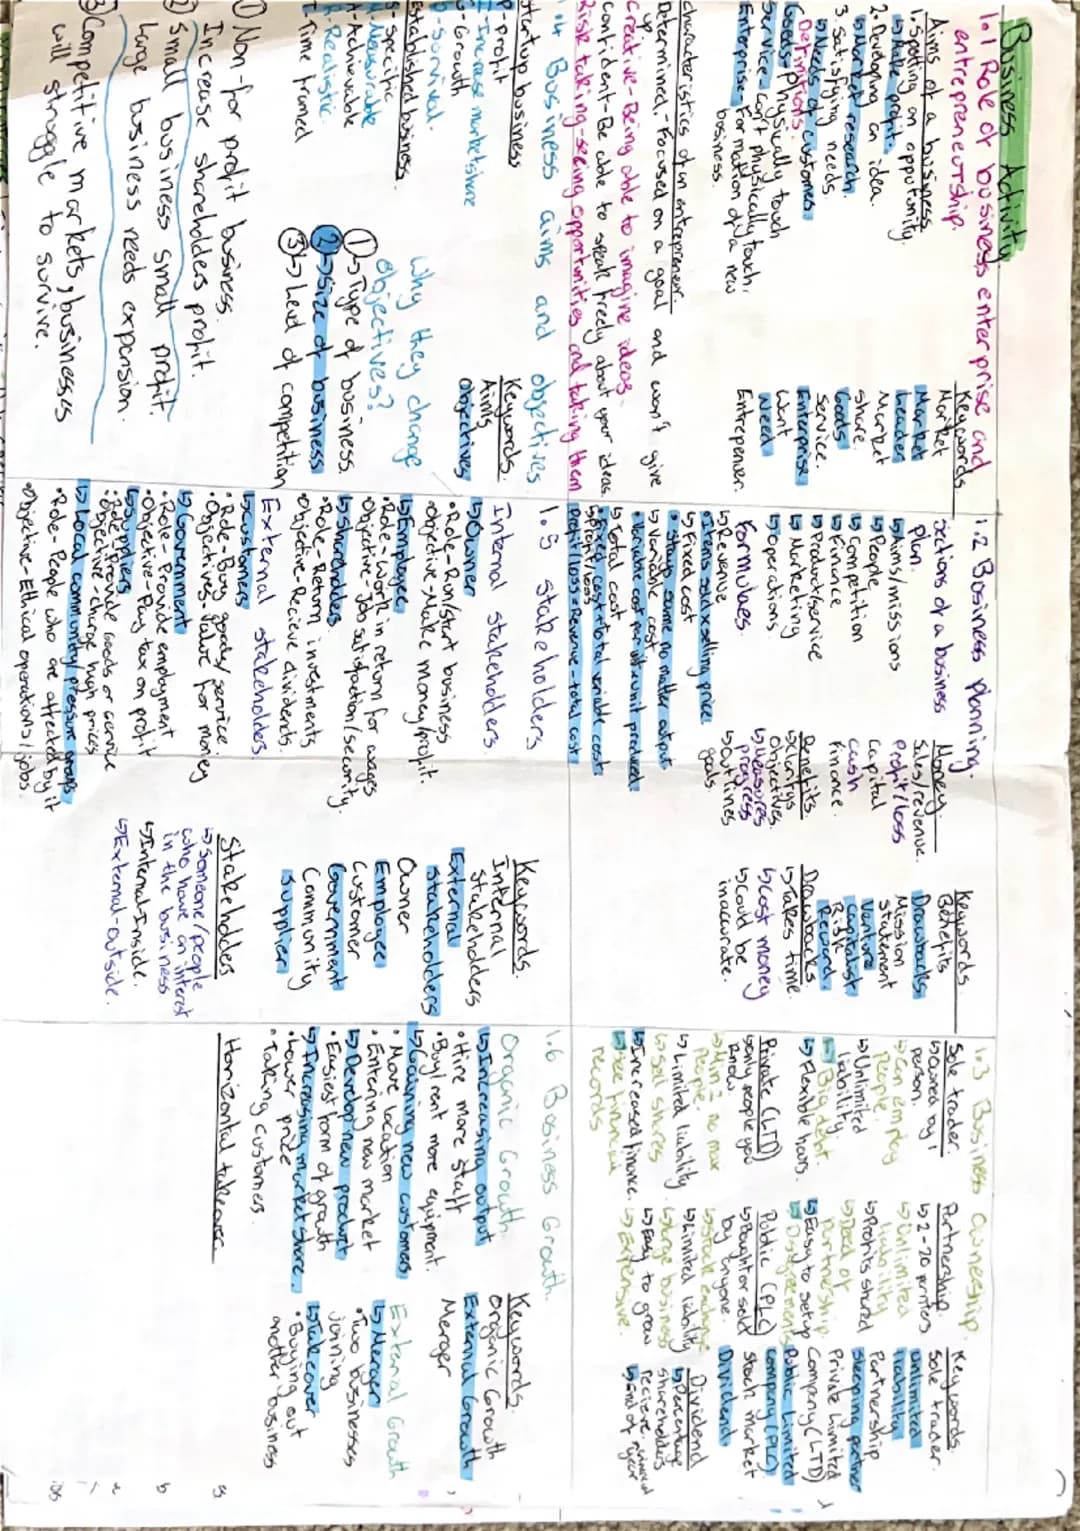 Business Activity
1.1 Role of business enterprise and
entrepreneurship.
Aims of a business
1. Spotting an opputunity.
↳ Make profit.
2. Developing an idea.
↳ Market research.
3. Satisfying needs.
↳ Needs of customers
Definitions:
Goods - physically touch
Service - can't physically touch.
Enterprise - Formation of a new
business.
Keywords
Market
Market
Leader
Market
share.
Goods
Service.
Enterprise
Want
Need
Entrepener.
characteristics of an entrepreneur.
Determined - Focused on a goal and won't give
up.
creative - Being able to imagine ideas.
confident - Be able to speak freely about your ideas.
Risk taking - seeing opportunities and taking them
1.2 Business planning.
sections of a business
plan.
↳ Aims/missions
↳ People
↳ Competition
↳ Finance
↳ Product/service
↳ Marketing
↳ Operations
Money
Sales/revenue.
Profit/loss
Capital
Cash
Finance.
Keywords.
Benefits
Drawbacks
Mission
statement
Venture
capitalist
Risk
Reward
Formulaes.
↳ Revenue
• Items sold x selling price
↳ Fixed cost
• Stays same no matter output
↳ Variable cost
• Variable cost per unit x unit produced
↳ Total cost
• Fixed cost + total variable cost
↳ Profit/loss
Profit/loss = Revenue - total cost
Benefits
↳ Clarifys
objectives.
↳ Measures
progress
↳ Outlines
goals
Drawbacks
↳ Takes time.
↳ Cost money
↳ Could be
inaccurate.
1.3 Business Ownership.
Sole trader
↳ Owned by 1
person.
↳ Can employ
people.
↳ Unlimited
liability
↳ Big debt.
↳ Flexible hours.
Partnership.
↳ 2-20 partners
↳ Unlimited
liability
↳ Profits shared
↳ Deed of
partnership.
↳ Easy to setup
↳ Disgreements
Keywords.
Sole trader.
Unlimited
liability
Partnership
Sleeping partner
Private Limited
Company (LTD)
Public Limited
company (PLC)
Stock market
Dividend.
Private (LTD)
↳ only people you
know
↳ Min 2 no max
People.
↳ Limited liability.
↳ Sell shares
↳ Increased finance.
↳ See financial
records
Public (PLC)
↳ Bought or sold
by anyone.
↳ Stock exchange
↳ Limited liability
↳ Large business
↳ Easy to grow
↳ Expensive.
Dividend
↳ Percentage
shareholders
recieve.
↳ End of year
1.4 Business aims and objectives
Startup business
P - Profit
I - Increase market share
G - Growth
S - Survival.
Keywords.
Aims
objectives
Established business.
S - Specific
M - Measurable
A - Achievable
R - Realistic.
T - Time framed
Why they change
objectives?
① ↳ Type of business.
② ↳ size of business
③ ↳ Level of competition
① Non-for profit business.
Increase shareholders profit.
② Small business small profit.
Large business needs expension.
③ Competitive markets, businesses
will struggle to survive.
1.5 Stakeholders
Internal stakeholders.
↳ Owner
• Role - Run/start business
• Objective - Make money/profit.
↳ Employee
• Role - Work in return for wages
• Objective - Job satisfaction/security.
↳ Shareholders.
• Role - Return investments
• Objective - Recieve dividends.
External stakeholders.
↳ Customers
• Role - Buy goods/service.
• Objectives - Value for money
↳ Government
• Role - Provide employment
• Objective - Pay tax on profit
↳ Suppliers
• Role - Provide goods or service
• Objective - Charge high prices
↳ Local community/pressure groups
• Role - People who are affected by it
• Objective - Ethical operations/jobs.
Keywords.
Internal
Stakeholders
External
stakeholders
Owner
Employee
Customer
Government
Community
Supplier
Stakeholders
↳ Someone/people
who have an interest
in the business
↳ Internal - Inside.
↳ External - outside.
1.6 Business Growth.
Organic Growth.
↳ Increasing output
• Hire more staff
• Buy/rent more equipment.
↳ Gaining new customers.
• Move location
• Entering new market
↳ Develop new product
• Easiest form of growth
↳ Increasing market share.
• Lower price
• Taking customers.
Horizontal takeover
Keywords.
Organic Growth
External Growth
Merger
External Growth
↳ Merger
• Two businesses
joining
↳ Takeover
• Buying out
another business